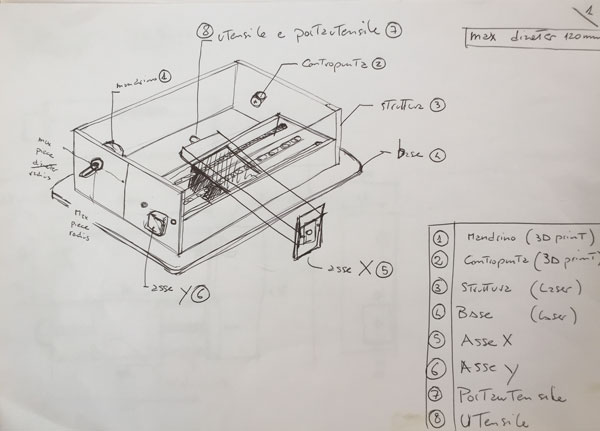 1
max diameter 120mm
⑧ utensile e portautensile ⑦
mandrino ①
contropunta ②
struttura ③
base ④
max
piece
diameter
radius
Max
piece
radius
asse X ⑤
asse Y ⑥
① Mandrino (3D print)
② Contropunta (3D print)
③ Struttura (Laser)
④ Base (Laser)
⑤ Asse X
⑥ Asse Y
⑦ Portautensile
⑧ Utensile